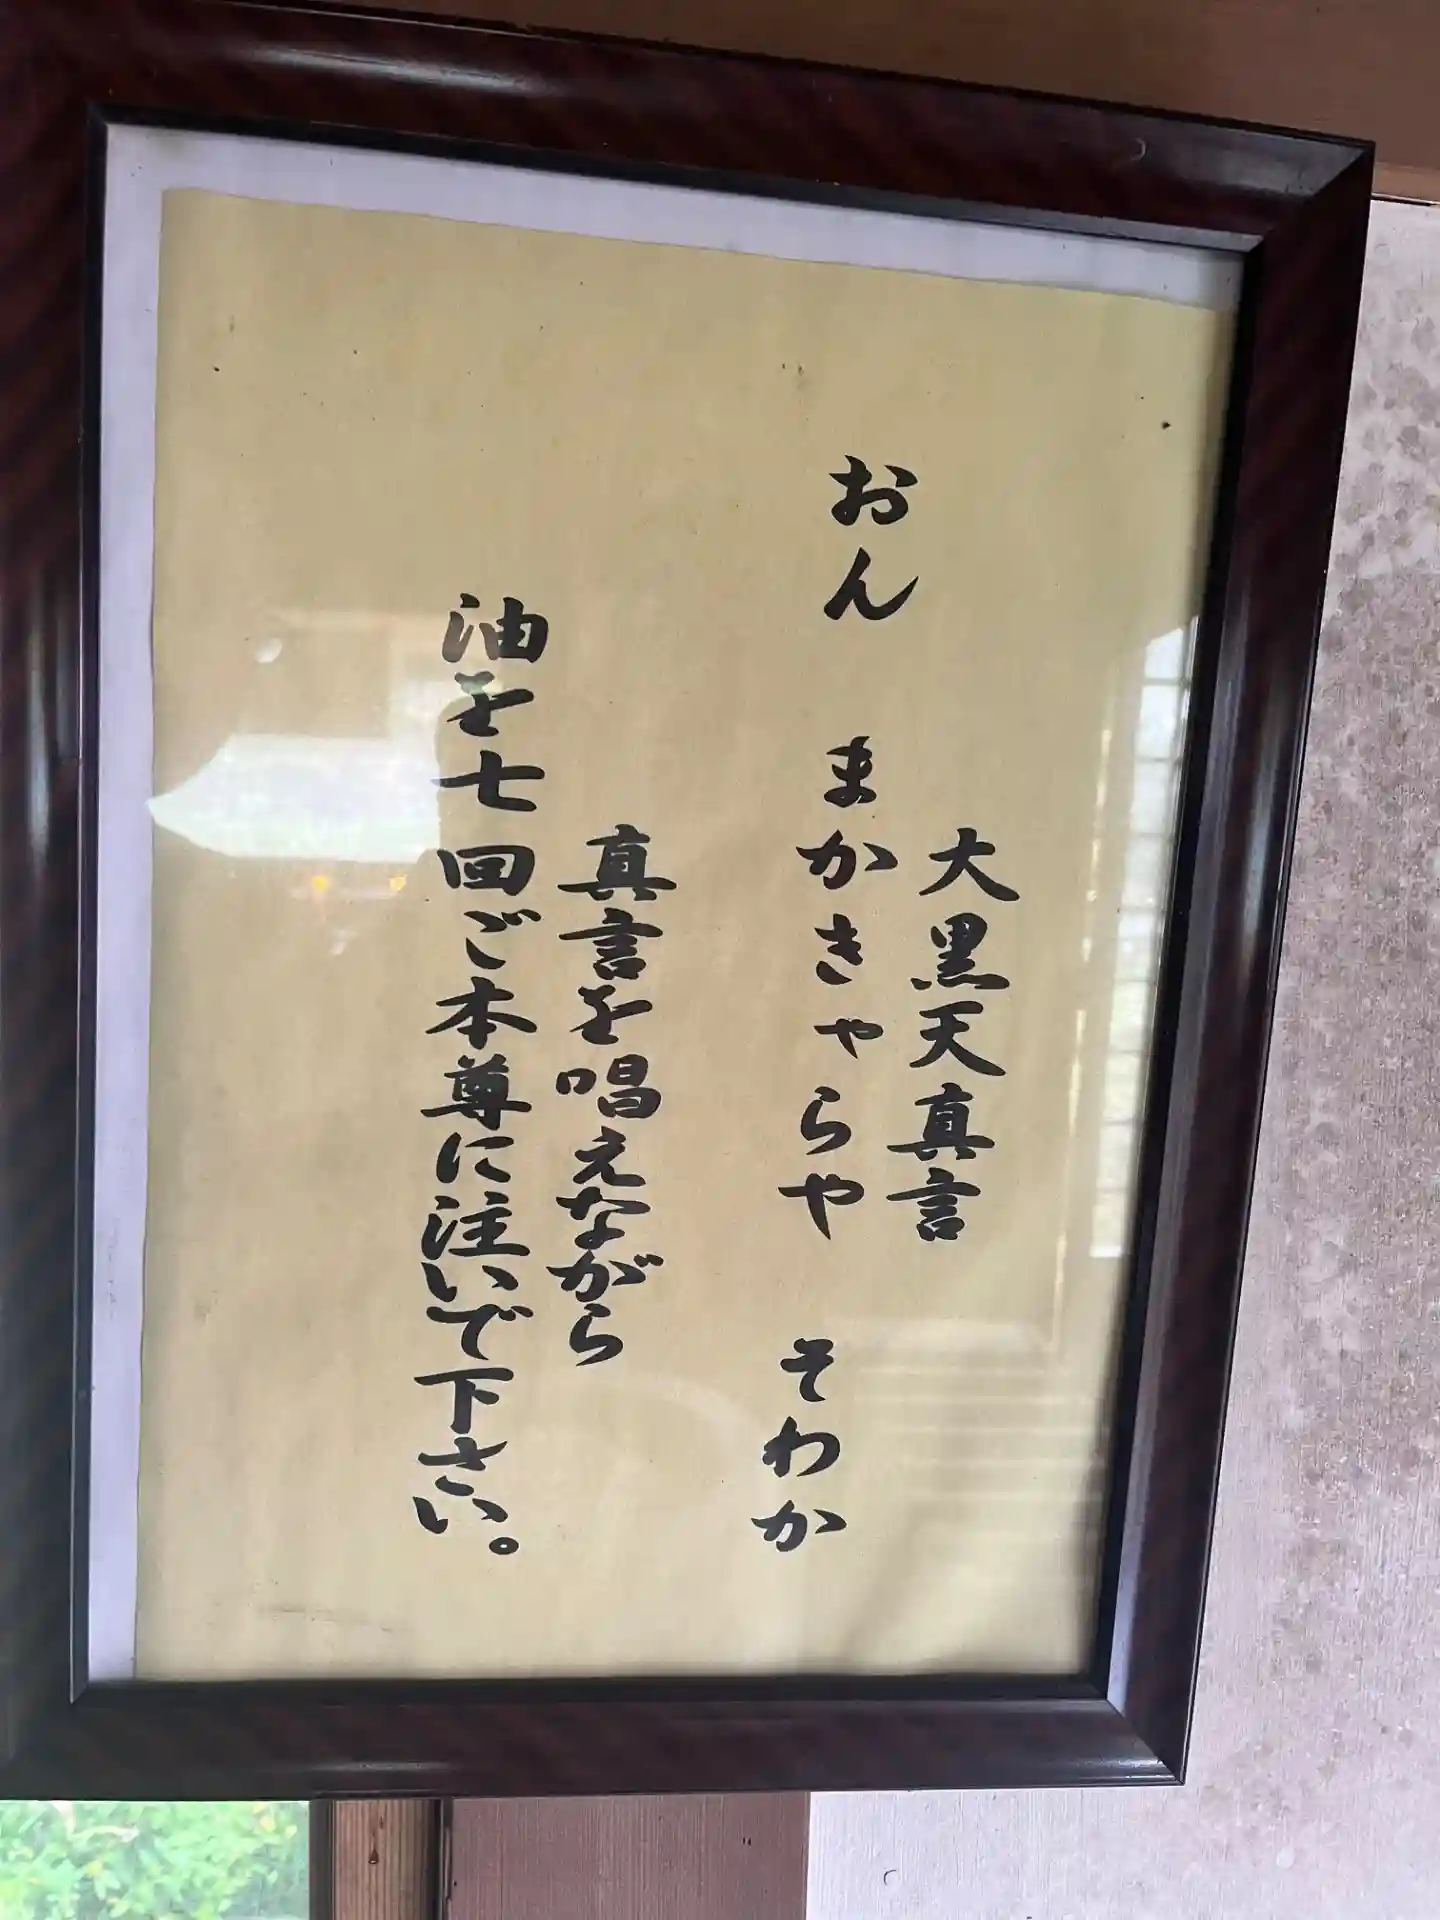 大黒天真言
おん まかきゃらや そわか
真言を唱えながら
油を七回ご本尊に注いで下さい。